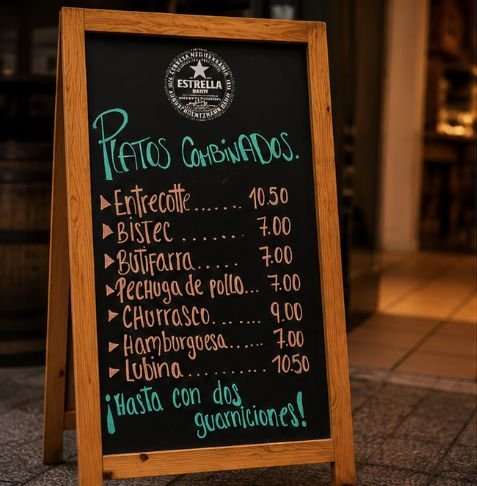 CERVESA MEDITERRÀNIA
ESTRELLA
DAMM
Platos Combinados.
Entrecotte....... 10.50
Bistec ....... 7.00
Butifarra..... 7.00
Pechuga de pollo... 7.00
Churrasco....... 9.00
Hamburguesa..... 7.00
Lubina.......... 10.50
¡Hasta con dos
guarniciones!